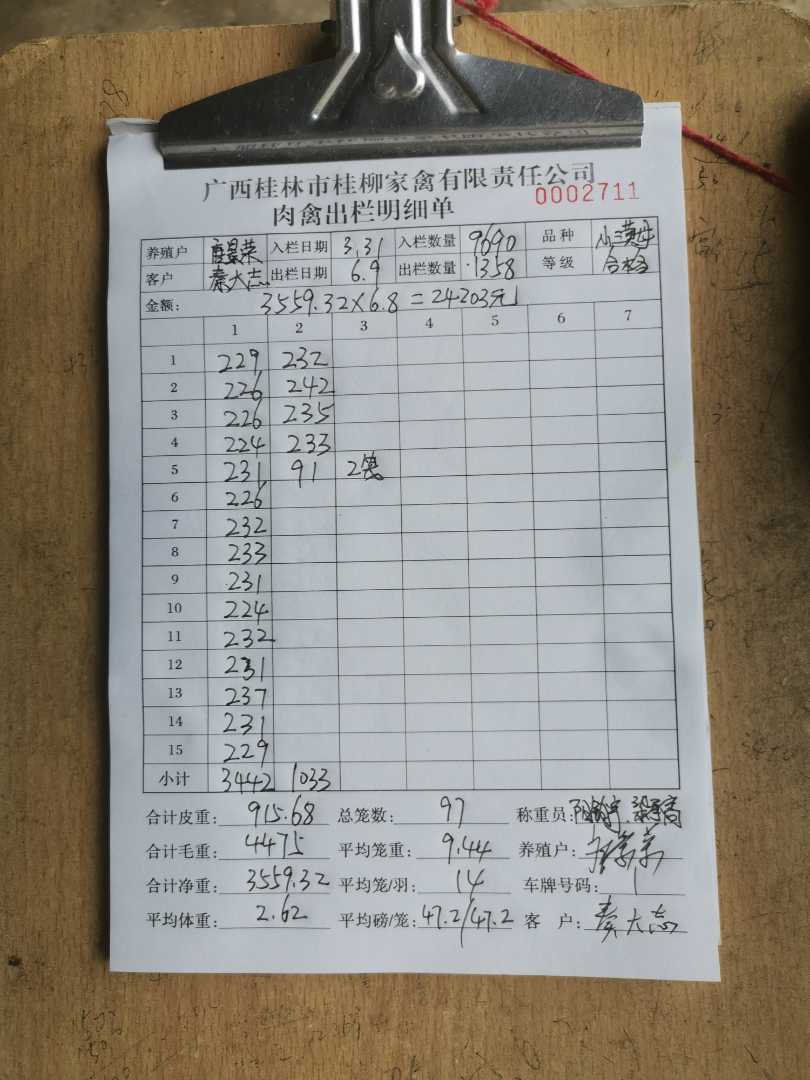 广西桂林市桂柳家禽有限责任公司
0002711
肉禽出栏明细单
养殖户 入栏日期 3.31 入栏数量 9690 品种
客户 秦大志 出栏日期 6.9 出栏数量 1358 等级 合格
金额: 3559.32×6.8=24203元
1 2 3 4 5 6 7
1 229 232
2 226 242
3 226 235
4 224 233
5 231 91 2笼
6 226
7 232
8 233
9 231
10 224
11 232
12 231
13 237
14 231
15 229
小计 3442 1033
合计皮重: 915.68 总笼数: 97 称重员:
合计毛重: 4475 平均笼重: 9.44 养殖户:
合计净重: 3559.32 平均笼/羽: 14 车牌号码:
平均体重: 2.62 平均磅/笼: 47.2/47.2 客户: 秦大志